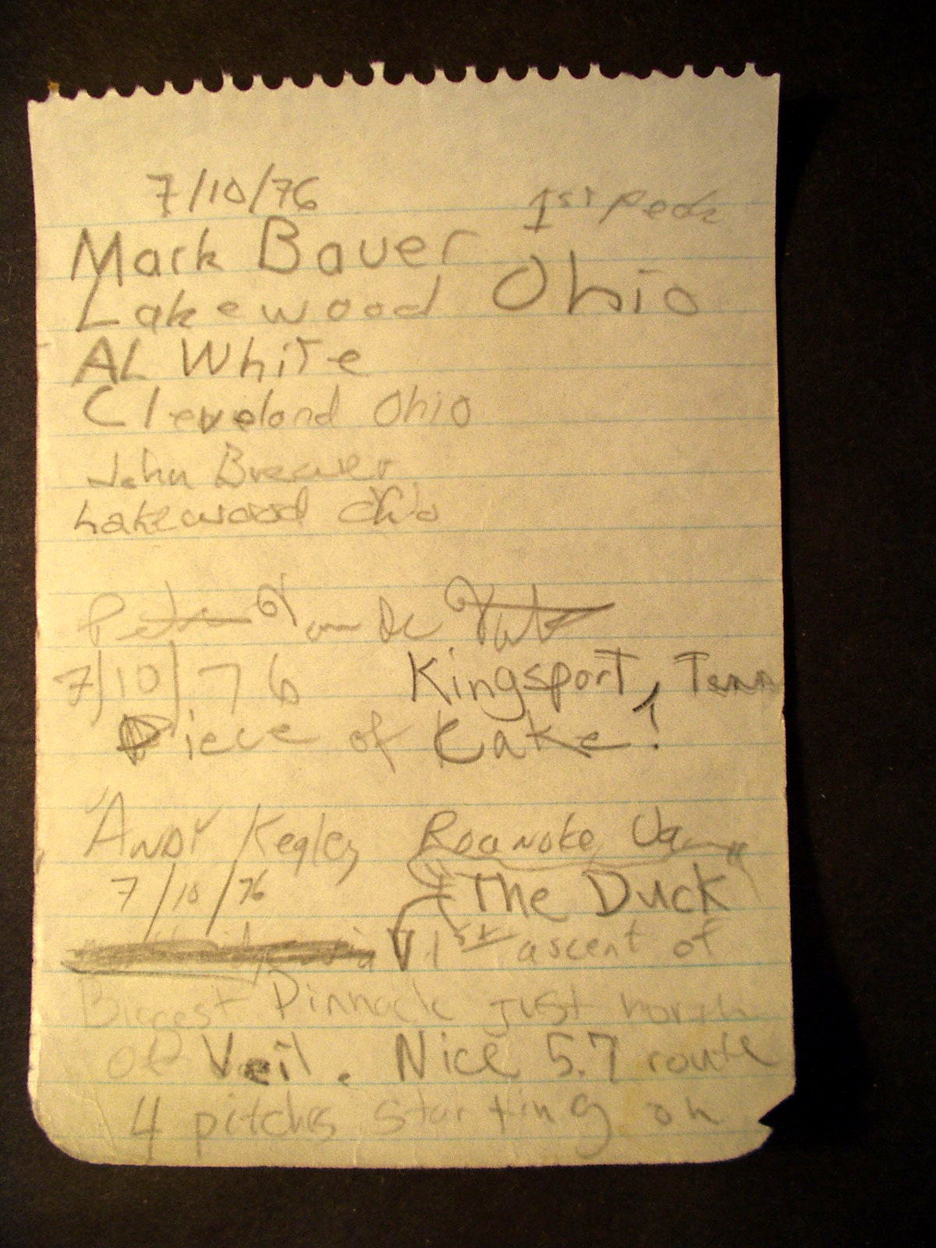 7/10/76 1st Peak
Mark Bauer
Lakewood Ohio
AL White
Cleveland Ohio
John Brewer
Lakewood Ohio
Van De
7/10/76 Kingsport, Tenn
Piece of Cake!
"Andy Kegley Roanoke, Va
7/10/76 "The Duck"
1st ascent of
Biggest Pinnacle just north
of Veil. Nice 5.7 route
4 pitches starting on